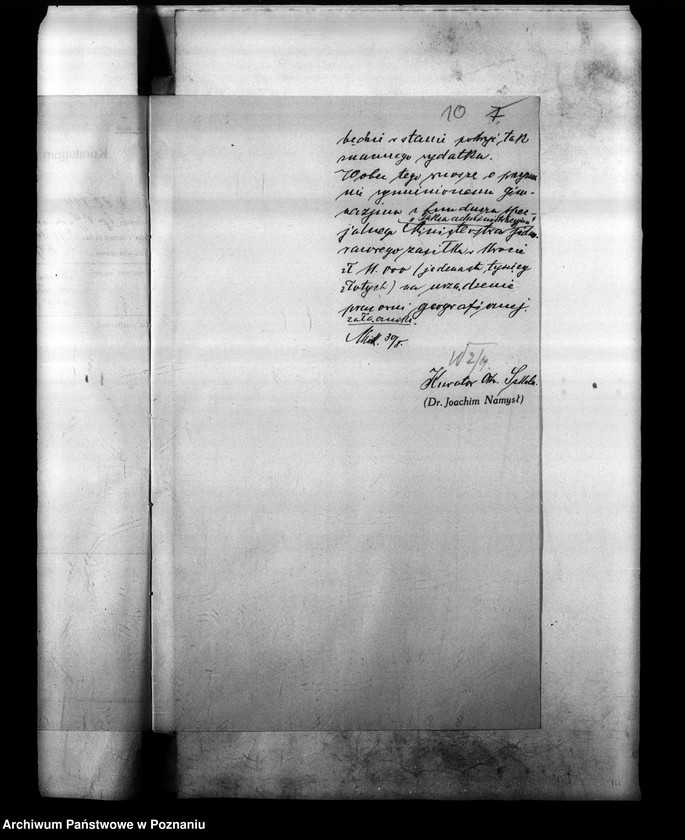 10 7
będzie w stanie pokryć tak
znacznego wydatku.
Wobec tego wnoszę o przyzna
nie wymienionemu gim-
nazjum z funduszu spec-
jalnego Ministerstwa jedno-
razowego zasiłku w kwocie
zł 11.000 (jedenaście tysięcy
złotych) na urządzenie
pracowni geograficznej.
W 2/9
Kurator Okr. Szkoln.
(Dr. Joachim Namysł)
Archiwum Państwowe w Poznaniu